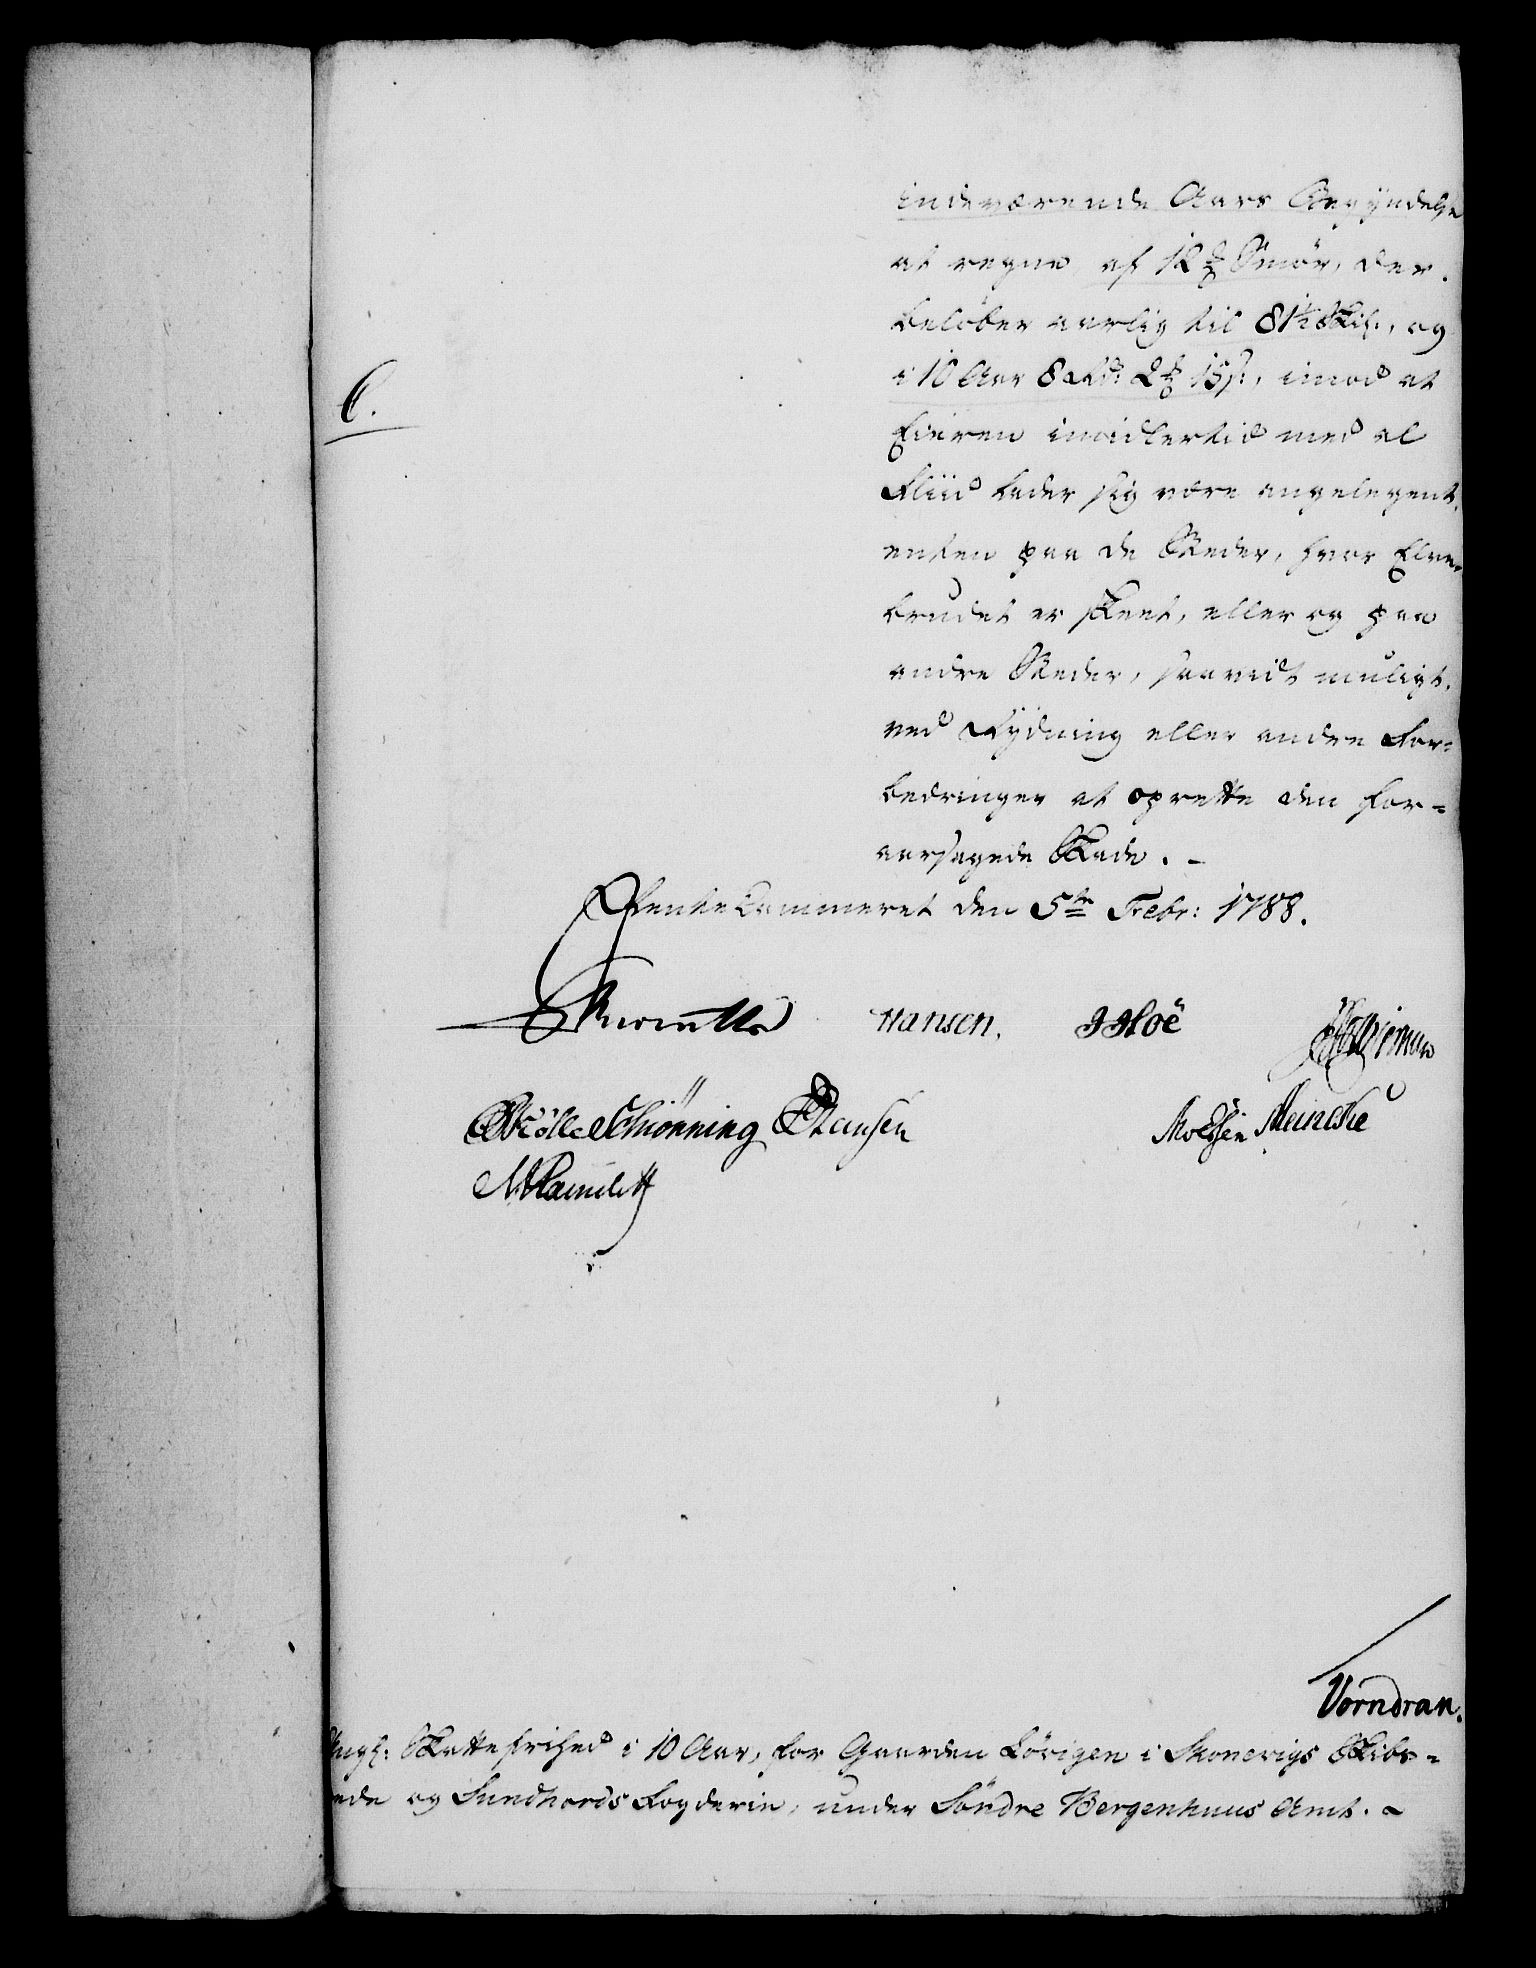 indeværende Aars Begÿndelse
at regne, af 12 ℔ Smør, der
beløber aarlig til 81½ Skil:, og
i 10 Aar 8 rd: 2 ℔ 15 s:, imod at
C.
Eieren imidlertid med al
Fliid lader sig være angelegent,
enten paa de Steder, hvor Elve-
brudet er skeet, eller og paa
andre Steder, saavidt muligt,
ved Rÿdning eller andre For-
bedringer at oprette den for-
aarsagede Skade. -
Rentekammeret den 5te Febr: 1788.
Hansen. Hoë
Schiønning Hansen Meincke
Vorndran.
Skattefrihed i 10 Aar, for Gaarden Lörigen i Skonevigs Skibr-
ede og Sundhords Fogderie, under Söndre Bergenhuus Amt.